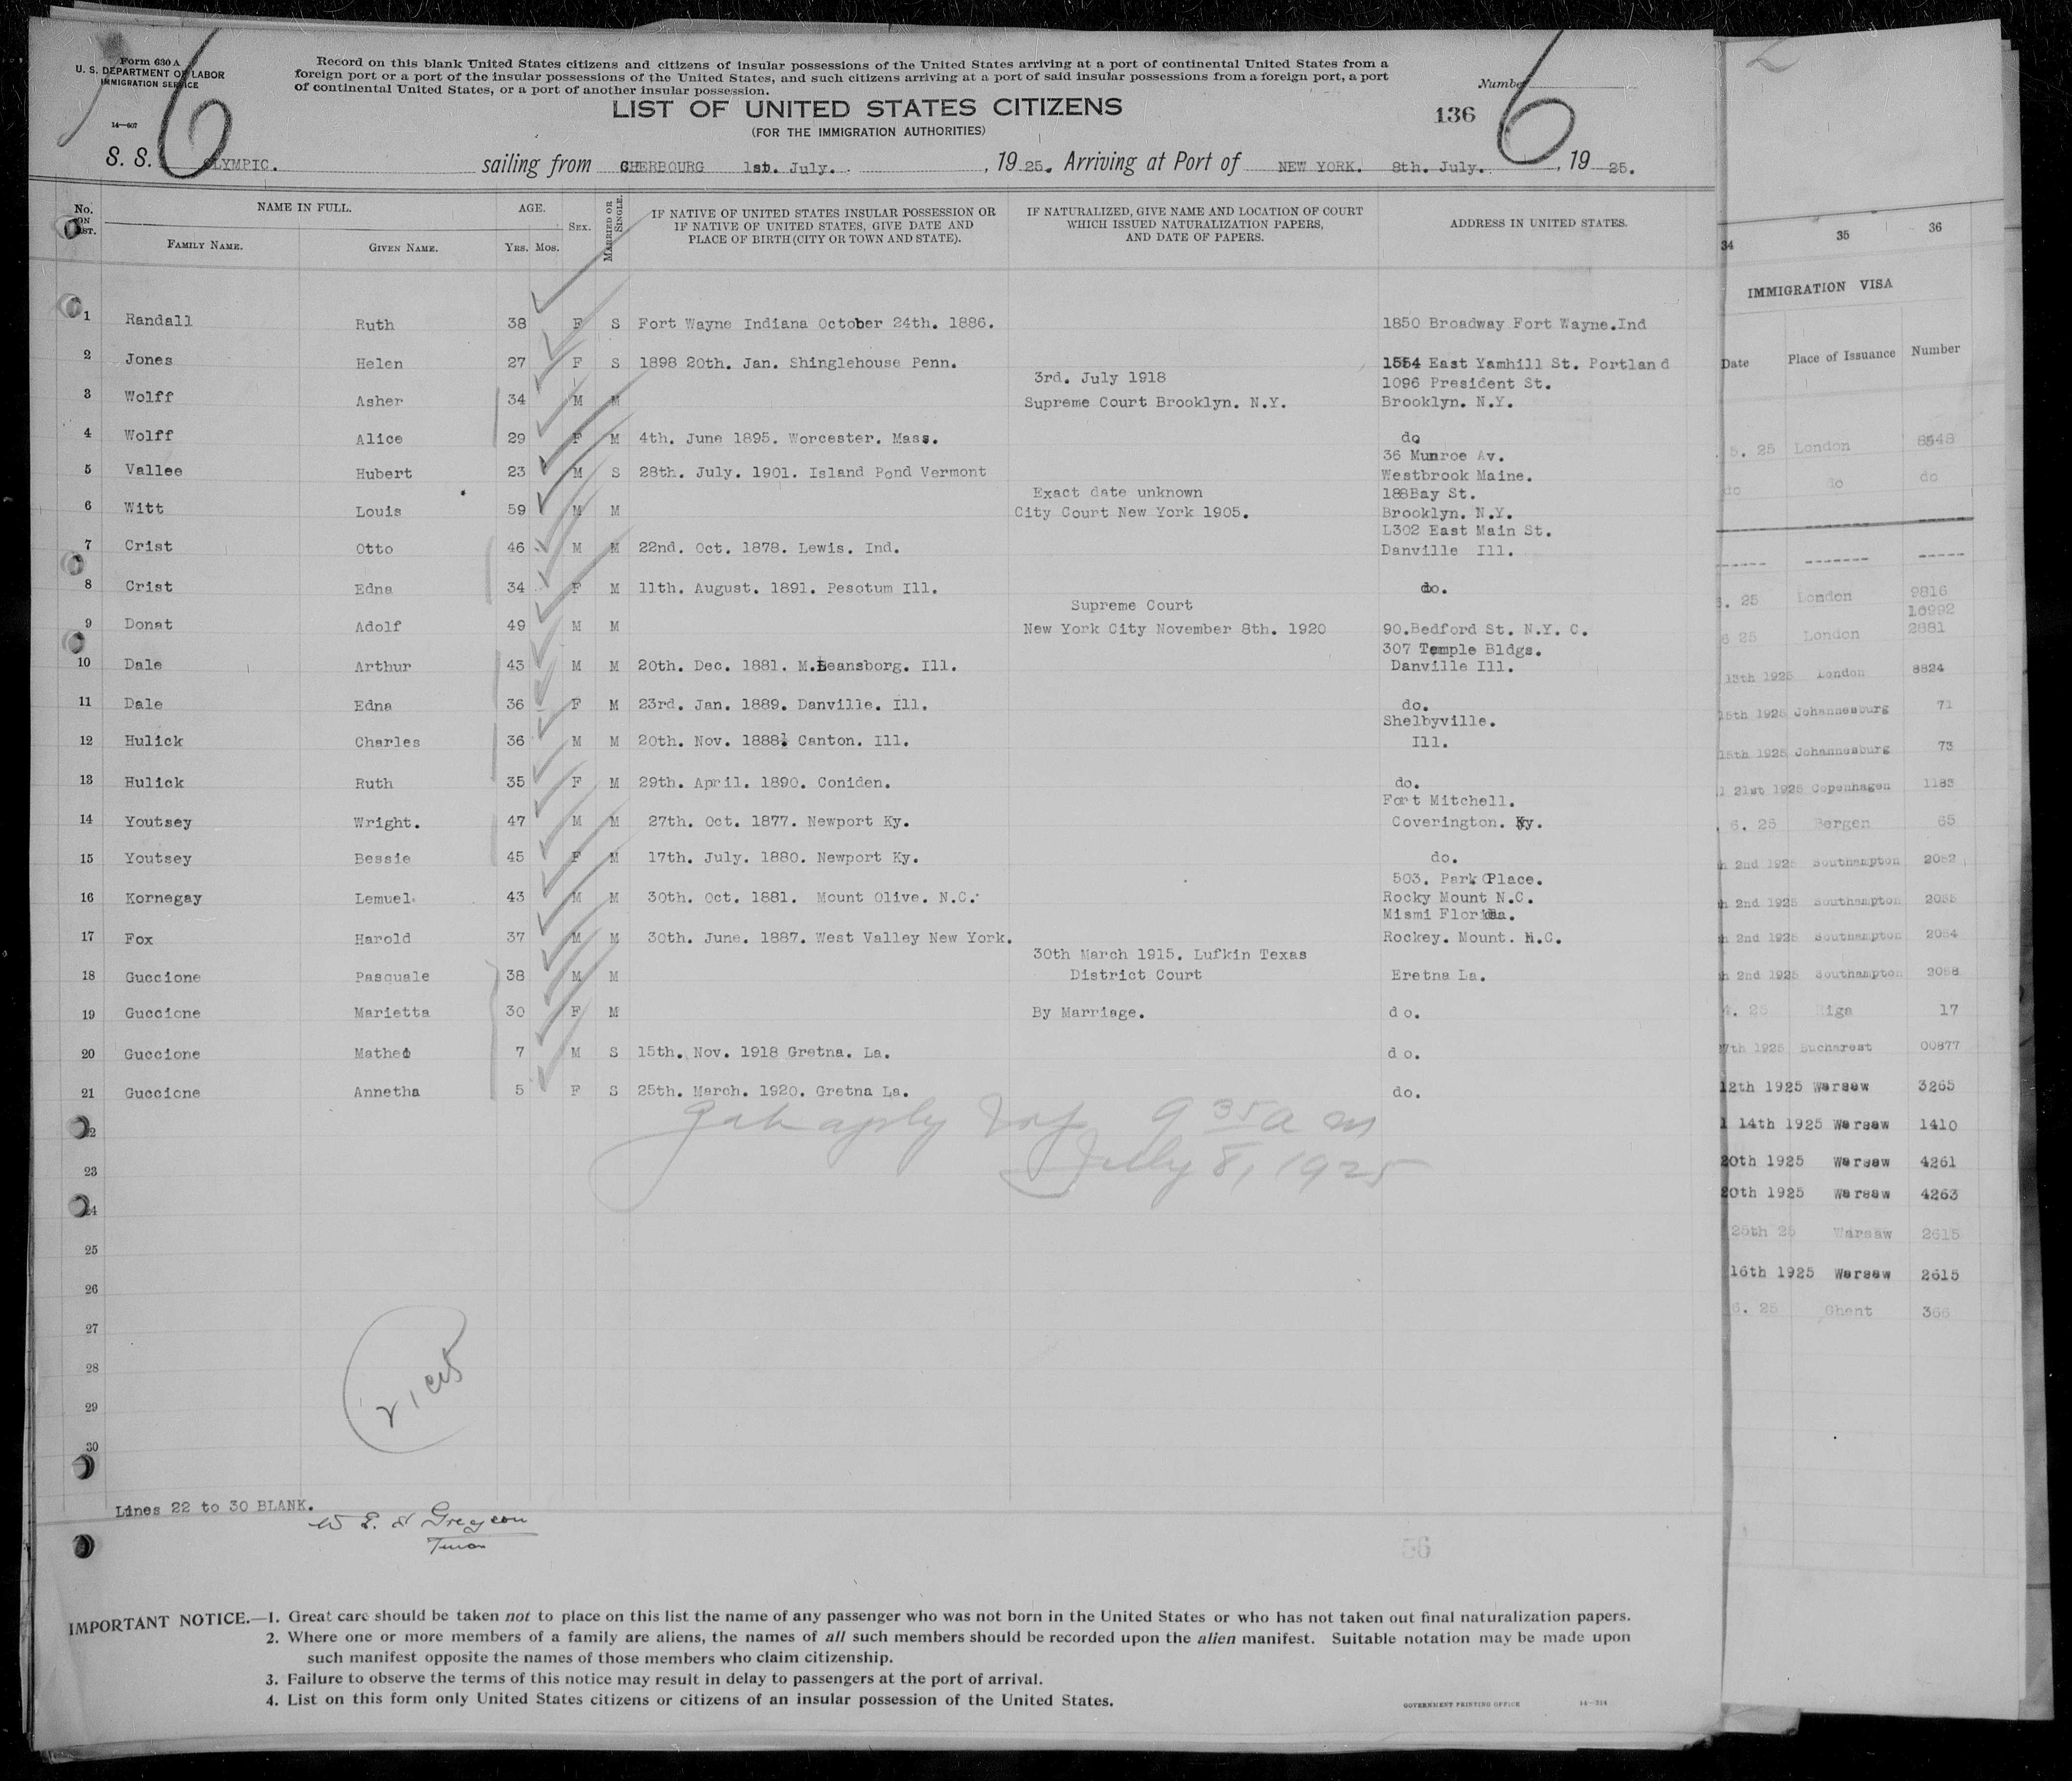 Form 630 A
U. S. DEPARTMENT OF LABOR
IMMIGRATION SERVICE
14—607
6
Record on this blank United States citizens and citizens of insular possessions of the United States arriving at a port of continental United States from a
foreign port or a port of the insular possessions of the United States, and such citizens arriving at a port of said insular possessions from a foreign port, a port
of continental United States, or a port of another insular possession.
Number
6
LIST OF UNITED STATES CITIZENS
136
(FOR THE IMMIGRATION AUTHORITIES)
S. S. OLYMPIC. sailing from CHERBOURG 1st. July. , 19 25. Arriving at Port of NEW YORK. 8th. July. , 19 25.
No. ON LIST. NAME IN FULL. AGE. SEX. MARRIED OR SINGLE. IF NATIVE OF UNITED STATES INSULAR POSSESSION OR IF NATIVE OF UNITED STATES, GIVE DATE AND PLACE OF BIRTH (CITY OR TOWN AND STATE). IF NATURALIZED, GIVE NAME AND LOCATION OF COURT WHICH ISSUED NATURALIZATION PAPERS, AND DATE OF PAPERS. ADDRESS IN UNITED STATES.
FAMILY NAME. GIVEN NAME. YRS. MOS.
1 Randall Ruth 38 F S Fort Wayne Indiana October 24th. 1886. 1850 Broadway Fort Wayne.Ind
2 Jones Helen 27 F S 1898 20th. Jan. Shinglehouse Penn. 1554 East Yamhill St. Portland
3rd. July 1918 1096 President St.
3 Wolff Asher 34 M M Supreme Court Brooklyn. N.Y. Brooklyn. N.Y.
4 Wolff Alice 29 F M 4th. June 1895. Worcester. Mass. do
36 Munroe Av.
5 Vallee Hubert 23 M S 28th. July. 1901. Island Pond Vermont Westbrook Maine.
Exact date unknown 188Bay St.
6 Witt Louis 59 M M City Court New York 1905. Brooklyn. N.Y.
L302 East Main St.
7 Crist Otto 46 M M 22nd. Oct. 1878. Lewis. Ind. Danville Ill.
8 Crist Edna 34 F M 11th. August. 1891. Pesotum Ill. do.
Supreme Court
9 Donat Adolf 49 M M New York City November 8th. 1920 90.Bedford St. N.Y. C.
307 Temple Bldgs.
10 Dale Arthur 43 M M 20th. Dec. 1881. M.Leansborg. Ill. Danville Ill.
11 Dale Edna 36 F M 23rd. Jan. 1889. Danville. Ill. do.
Shelbyville.
12 Hulick Charles 36 M M 20th. Nov. 1888. Canton. Ill. Ill.
13 Hulick Ruth 35 F M 29th. April. 1890. Coniden. do.
Fort Mitchell.
14 Youtsey Wright. 47 M M 27th. Oct. 1877. Newport Ky. Coverington. Ky.
15 Youtsey Bessie 45 F M 17th. July. 1880. Newport Ky. do.
503. Park Place.
16 Kornegay Lemuel 43 M M 30th. Oct. 1881. Mount Olive. N.C. Rocky Mount N.C.
Mismi Florida.
17 Fox Harold 37 M M 30th. June. 1887. West Valley New York. Rockey. Mount. N.C.
30th March 1915. Lufkin Texas
18 Guccione Pasquale 38 M M District Court Eretna La.
19 Guccione Marietta 30 F M By Marriage. do.
20 Guccione Matheo 7 M S 15th. Nov. 1918 Gretna. La. do.
21 Guccione Annetha 5 F S 25th. March. 1920. Gretna La. do.
22
9 35 a m
July 8, 1925
23
24
25
26
27
28
29
30
Lines 22 to 30 BLANK.
56
IMPORTANT NOTICE.—1. Great care should be taken not to place on this list the name of any passenger who was not born in the United States or who has not taken out final naturalization papers.
2. Where one or more members of a family are aliens, the names of all such members should be recorded upon the alien manifest. Suitable notation may be made upon
such manifest opposite the names of those members who claim citizenship.
3. Failure to observe the terms of this notice may result in delay to passengers at the port of arrival.
4. List on this form only United States citizens or citizens of an insular possession of the United States.
GOVERNMENT PRINTING OFFICE 14—314
34 35 36
IMMIGRATION VISA
Date Place of Issuance Number
5. 25 London 8548
do do do
. 25 London 9816
10992
6 25 London 2881
13th 1925 London 8824
15th 1925 Johannesburg 71
15th 1925 Johannesburg 73
21st 1925 Copenhagen 1183
6. 25 Bergen 65
2nd 1925 Southampton 2052
2nd 1925 Southampton 2055
2nd 1925 Southampton 2054
2nd 1925 Southampton 2058
4. 25 Riga 17
7th 1925 Bucharest 00877
12th 1925 Warsaw 3265
14th 1925 Warsaw 1410
20th 1925 Warsaw 4261
20th 1925 Warsaw 4263
25th 25 Warsaw 2615
16th 1925 Warsaw 2615
6. 25 Ghent 366